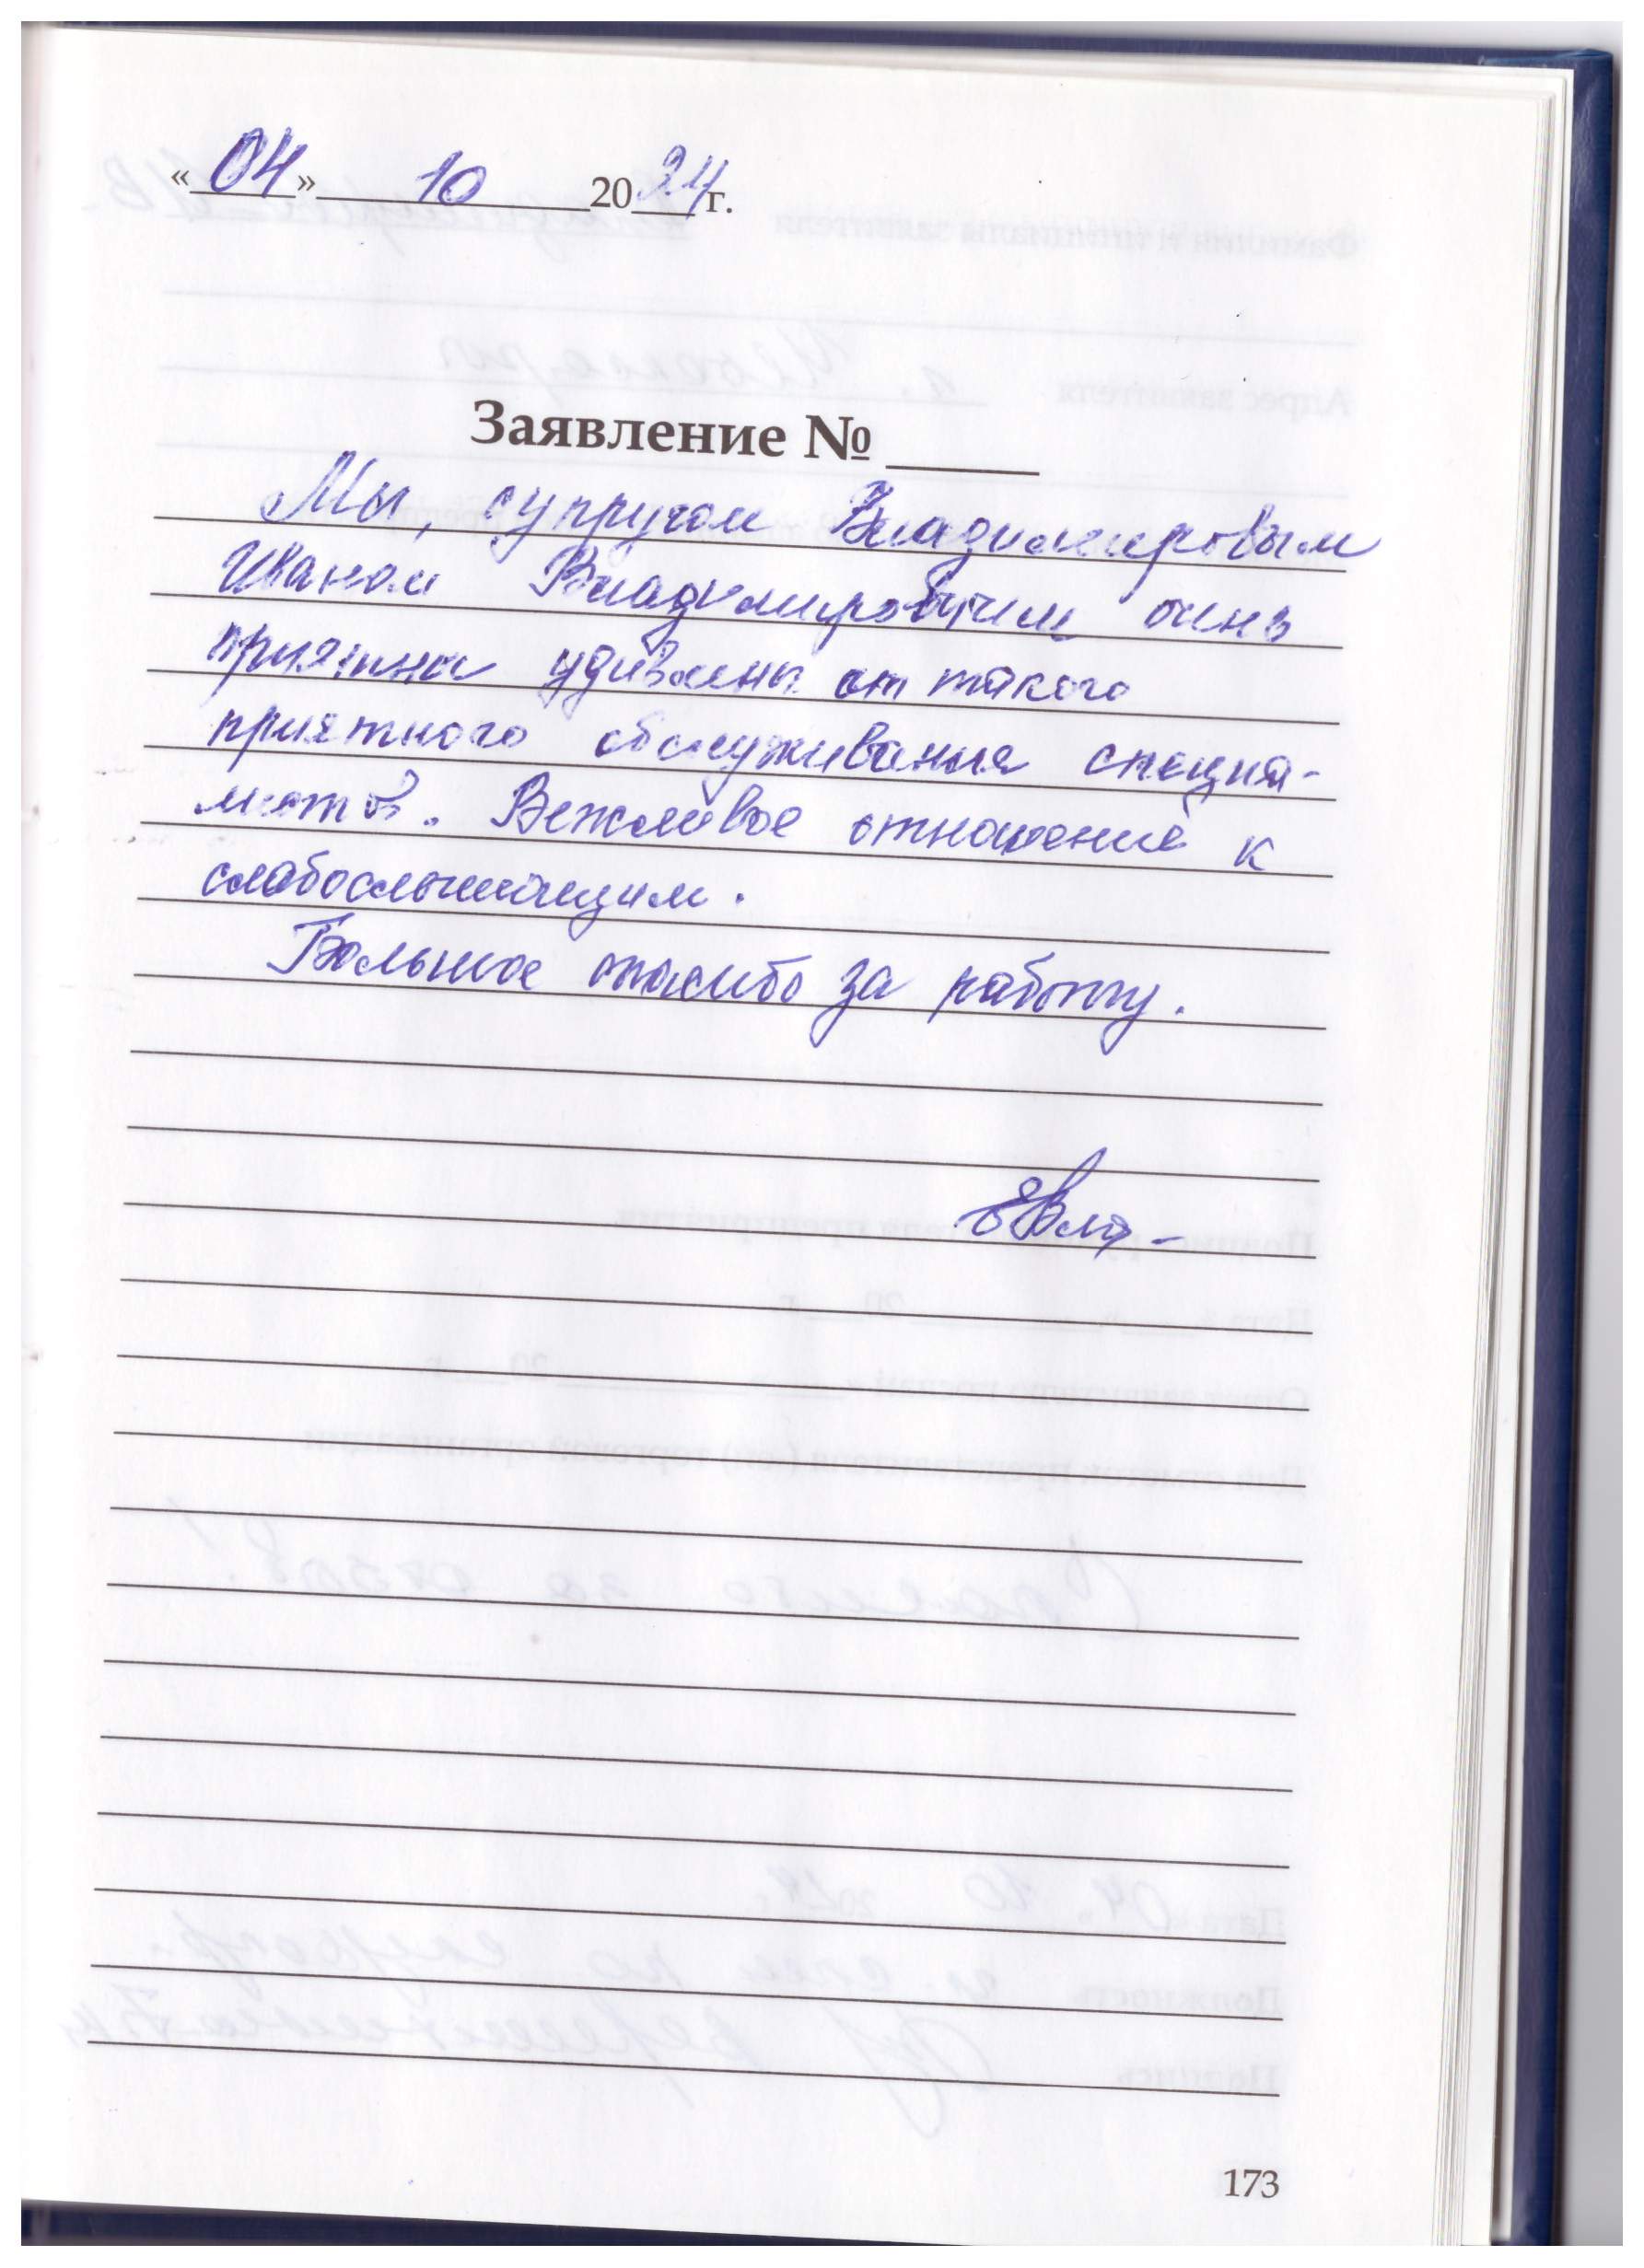 «04» 10 2024 г.
Заявление № ____
Мы, супругом Владимировым
Иваном Владимировичем очень
приятны удивлены от такого
приятного обслуживания специа-
листов. Вежливое отношение к
слабослышащим.
Большое спасибо за работу.
173